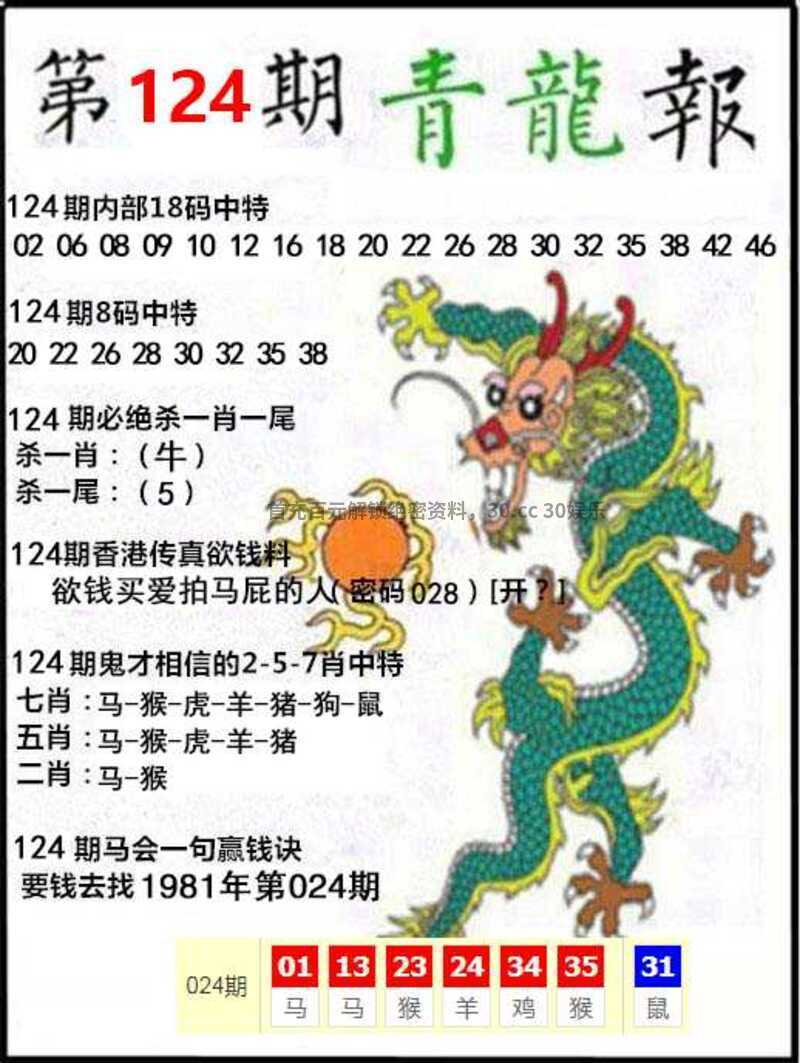 第124期青龍報
124期内部18码中特
02 06 08 09 10 12 16 18 20 22 26 28 30 32 35 38 42 46
124期8码中特
20 22 26 28 30 32 35 38
124期必绝杀一肖一尾
杀一肖：（牛）
杀一尾：（5）
首充百元解锁绝密资料，30.cc 30娱乐
124期香港传真欲钱料
欲钱买爱拍马屁的人（密码028）[开？]
124期鬼才相信的2-5-7肖中特
七肖：马-猴-虎-羊-猪-狗-鼠
五肖：马-猴-虎-羊-猪
二肖：马-猴
124期马会一句赢钱诀
要钱去找1981年第024期
024期 01 13 23 24 34 35 31
马 马 猴 羊 鸡 猴 鼠